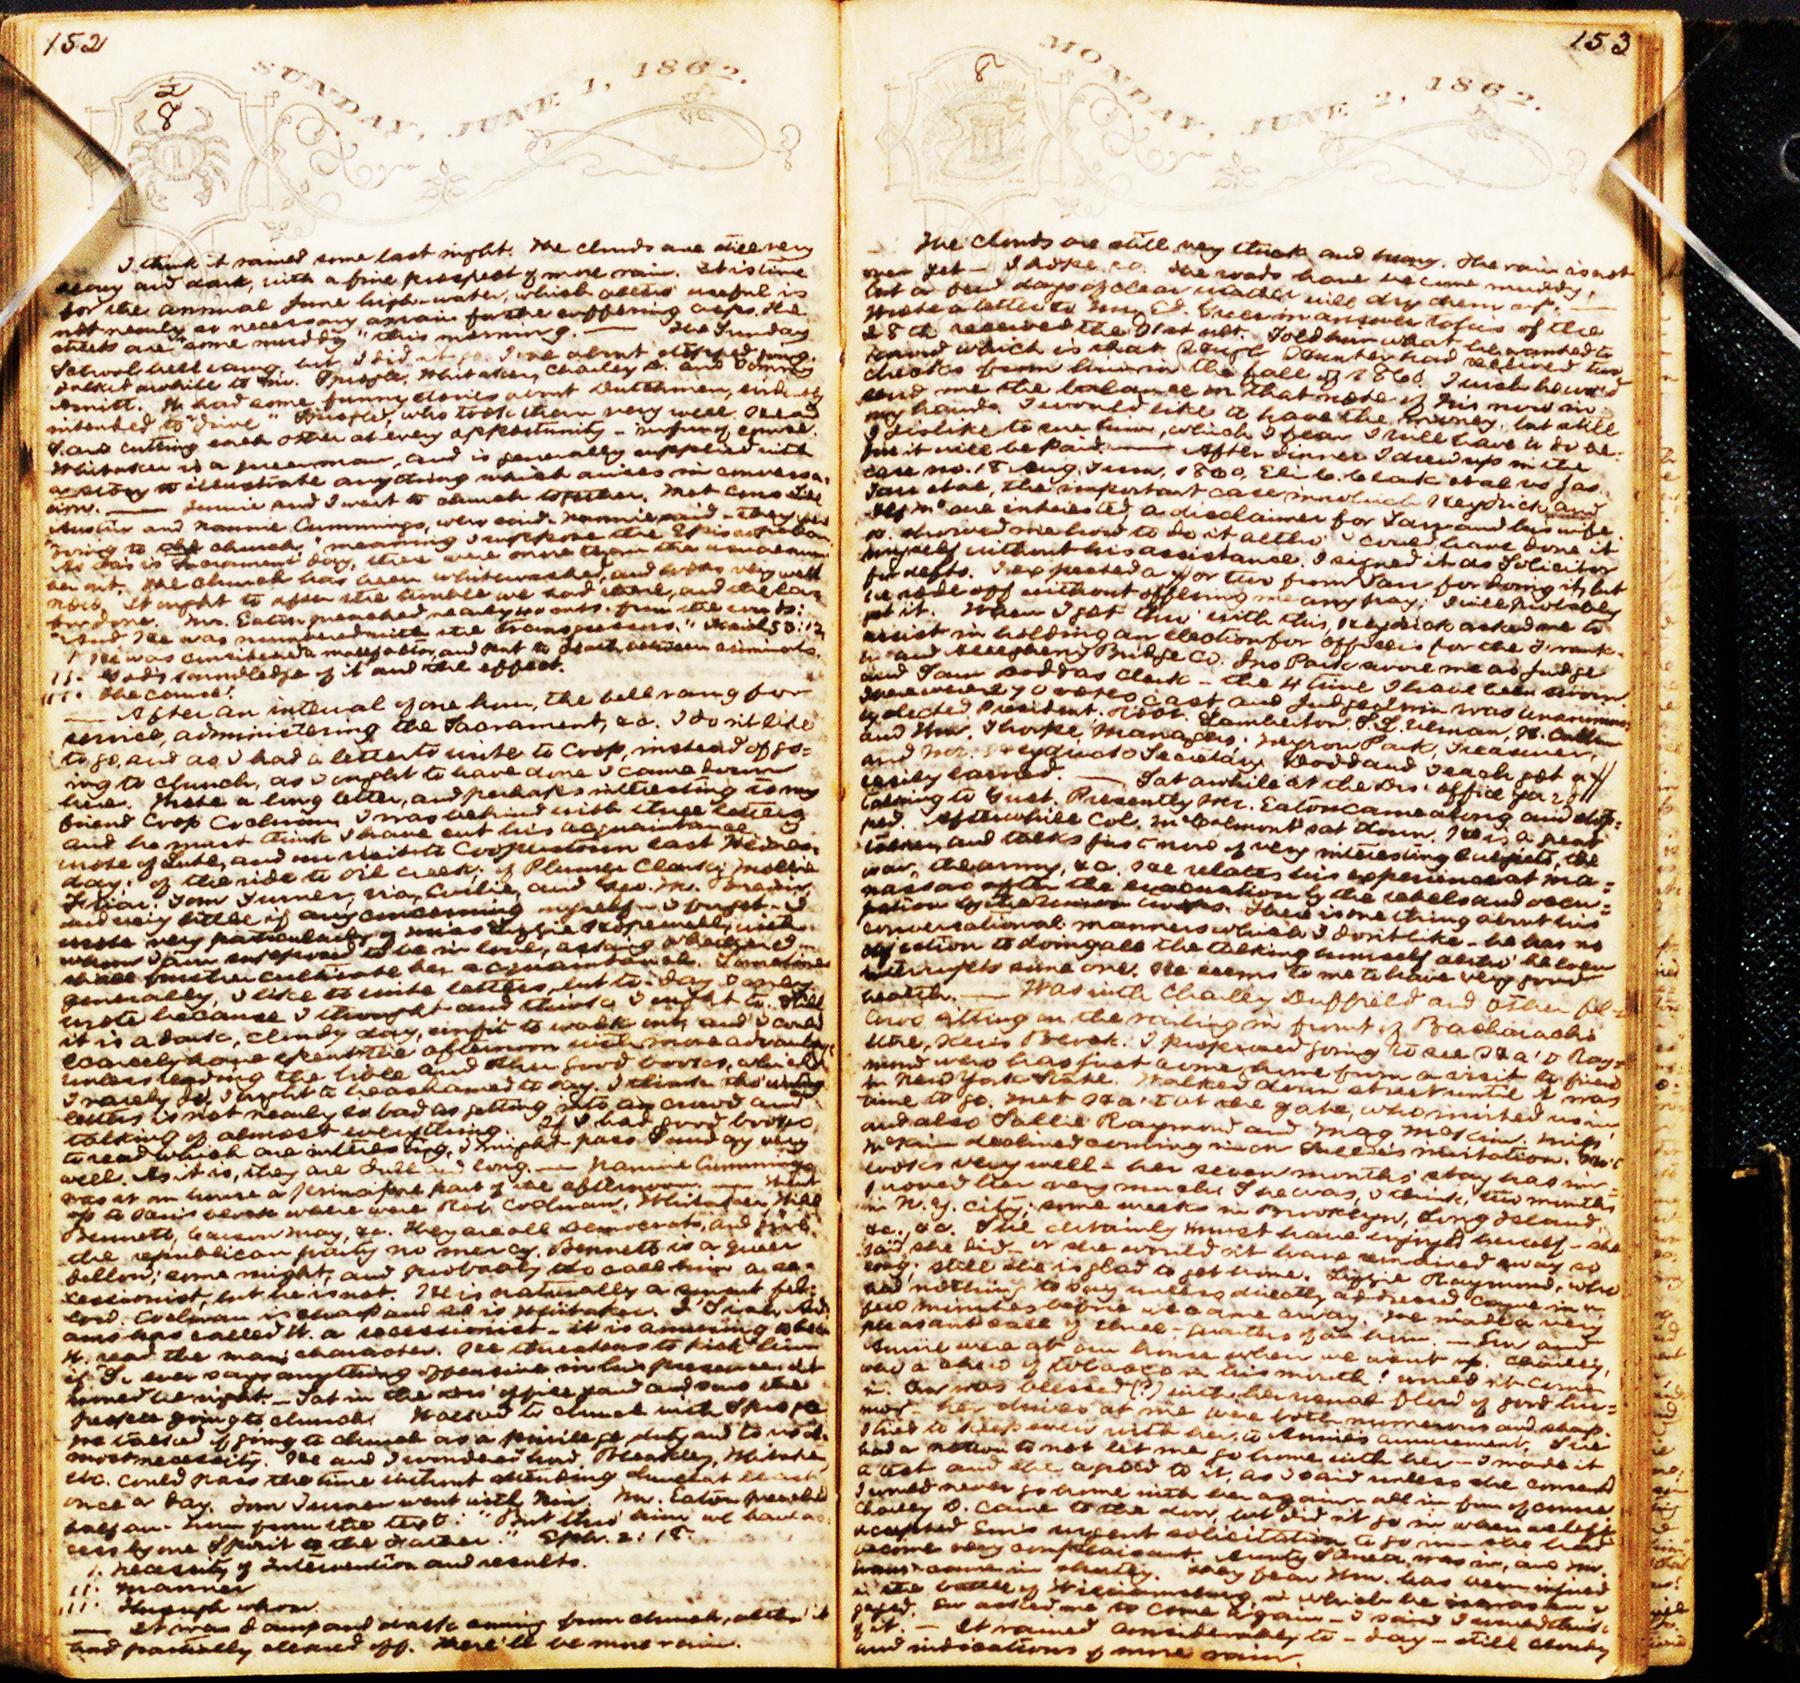 152
SUNDAY, JUNE 1, 1862.
I think it rained some last night. The clouds are still very
heavy and dark, with a fine prospect of more rain. It is time
for the annual June high-water, which altho' useful is
not nearly so necessary as rain for the suffering crops. The
streets are "some muddy" this morning. — The Sunday
School bell rang, but I did n't go. I've about stopped going.
Talked awhile to Mr. Whitaker, Charley D. and Tommy
He had some funny stories about Dutchmen, evidently
intended to "drive" who took them very well. He and
S. are cutting each other at every opportunity – in fun of course.
Whitaker is a queer man, and is generally supplied with
a story to illustrate anything which arises in conversa-
tion. — Jennie and I went to church together. Met
Austin and Nannie Cummings, who said – Nannie said – they were
"going to church," meaning I suppose the Episcopalian.
As this is Sacrament day, there were more than the usual number
out. The church has been whitewashed, and looks very well
now. It ought to after the trouble we had
Mr. Eaton preached nearly from the words:
"And He was numbered with the transgressors." Isaiah 53:12
I. He was considered a malefactor, and put to death between criminals.
II. God's knowledge of it and the effect.
III. The cause.
— After an interval of one hour, the bell rang for
service, administering the Sacrament, &c. I do n't like
to go, and as I had a letter to write to Crop, instead of go-
ing to church, as I ought to have done I came down
here. Wrote a long letter, and perhaps interesting to my
friend Crop Coolman. I was behind with three letters
and he must think I have cut his acquaintance.
wrote of and our visit to Cooperstown last Wednes-
day; of the ride to Oil Creek; of Plumer Clark; Mollie
Tom Turner,
and very little if any concerning myself – I forget – I
wrote very particularly of Miss Lizzie with
whom I am supposed to be in love, asking whether I
shall further cultivate her acquaintance. Sometimes
generally, I like to write letters, but to-day I only
wrote because I thought and think I ought to. Still
it is a dark, cloudy day, unfit to walk out, and I could
scarcely have spent the afternoon with more advantage
unless reading the bible and other good books, which
I rarely do, I ought to be ashamed to say. I think tho' writing
letters is not nearly so bad as getting into a crowd and
talking of almost everything. If I had good books,
to read which are interesting, I might pass Sunday very
well. As it is, they are dull and long. — Nannie Cummings
was at our house a principal part of the afternoon. — Went
up a where were Coolman, Whitaker, Will
Bennett, May, &c. They are all Democrats, and give
the republican party no mercy. Bennett is a queer
fellow; some might, and probably do call him a se-
cessionist, but he is not. He is naturally a smart fel-
low. Coolman is sharp and so is Whitaker.
has called W. a secessionist – it is amusing to hear
W. read the man's character. He threatens to kick him
if S. ever says anything offensive in his presence
— Sat in the office yard and saw the
people going to church. Walked to church with
We talked of going to church as a privilege, duty and to us al-
most necessity. He and I wondered how Bleakley, Whitaker
etc. could pass the time without attending church at least
once a day. Tom Turner went with him. Mr. Eaton preached
half an hour from the text: "But thro' him we have ac-
cess by one Spirit to the Father." Eph. 2:18.
I. Necessity of Intervention and results.
II. Manner
III. Through whom.
— It was damp and dark coming from church, altho' it
had partially cleared off. There'll be more rain.
153
MONDAY, JUNE 2, 1862.
The clouds are still very thick and hung. The rain is not
over yet – I hope so. The roads have become muddy,
but a few days of clear weather will dry them up. —
Wrote a letter to in answer to his of the
28th received the 31st ult. Told him what he wanted to
know which is that Hunter had received two
checks from him in the fall of 1860. I wish he would
send me the balance on that note of his now in
my hands. I would like to have the money, but still
I dislike to sue him, which I fear I will have to do be-
fore it will be paid. — After dinner I drew up in the
case no. 18 Aug. Term, 1860, Eli vs Jas.
Tarr et al, the important case in which Heydrick and
are interested a disclaimer for Tarr and his wife.
showed me how to do it altho' I could have done it
myself without his assistance. I signed it as Solicitor
for defts. I expected a $ or two from Tarr for doing it, but
he rode off without offering me any pay; I will probably
get it. When I got thro' with this, Heydrick asked me to
assist in holding an election for officers for the Frank-
lin and Allegheny Bridge Co. Jno Park swore me as Judge
and Sam Dodd as Clerk – the 4 time I have been sworn.
There were 70 votes cast and Judge was unanimous-
ly elected President. Robt. Lamberton, S. S. Ulman,
and Wm. Thorpe, Managers. Myron Park, Treasurer,
and Mr. Heydrick Secretary. Dodd and I each got a $1
easily earned. — Sat awhile at the office yard
talking to Gust. Presently Mr. Eaton came along and stop-
ped. Afterwhile Col. McCalmont sat down. He is a great
talker, and talks just now of very interesting subjects, the
war, the army, &c. He relates his experience at Ma-
nassas after the evacuation by the rebels and occu-
pation by the union troops. There is something about his
conversational manners which I don't like – he has no
objection to doing all the talking himself altho' he even
interrupts some one. He seems to me to have very good
health. — Was with Charley Duffield and other fel-
lows sitting on the railing in front of Bacharach's
store, I proposed going to see Ray-
mond who has just come home from a visit to friends
in New York State. Walked down street until it was
time to go. Met at the gate, who invited us in,
and also Sallie Raymond and Mag McKim. Miss
McKim declined coming in on Sallie's invitation.
looks very well – her seven months' stay has im-
proved her very much. She was, I think, two months
in N.Y. City; some weeks in Brooklyn, Long Island,
&c. &c. She certainly must have enjoyed herself – she
said she did – or she would n't have remained away so
long; still she is glad to get home. Lizzie Raymond, who
had nothing to say unless directly addressed, came in a
few minutes before we came away. We made a very
pleasant call of three-quarters of an hour. — Em and
Annie were at our house when we went up. Charley,
had a chew of tobacco in his mouth & would n't come
in. Em was blessed (?) with her usual flow of good hu-
mor. Her drives at me were both numerous and sharp.
I tried to keep even with her, to Annie's amusement. She
had a notion to not let me go home with her – I made it
a test and she agreed to it, as I said unless she consented
I would never go home with her again – all in fun of course
Charley D. came to the door, but did n't go in when we left
accepted Em's urgent solicitation to go in – she had
become very complaisant. Aunty was in, and Mr.
came in shortly. They fear Wm. has been injured
in the battle of Williamsburg, in which he was en-
gaged. Em asked me to come again – I said I would think
of it. — It rained considerably to-day – still cloudy
and indications of more rain.